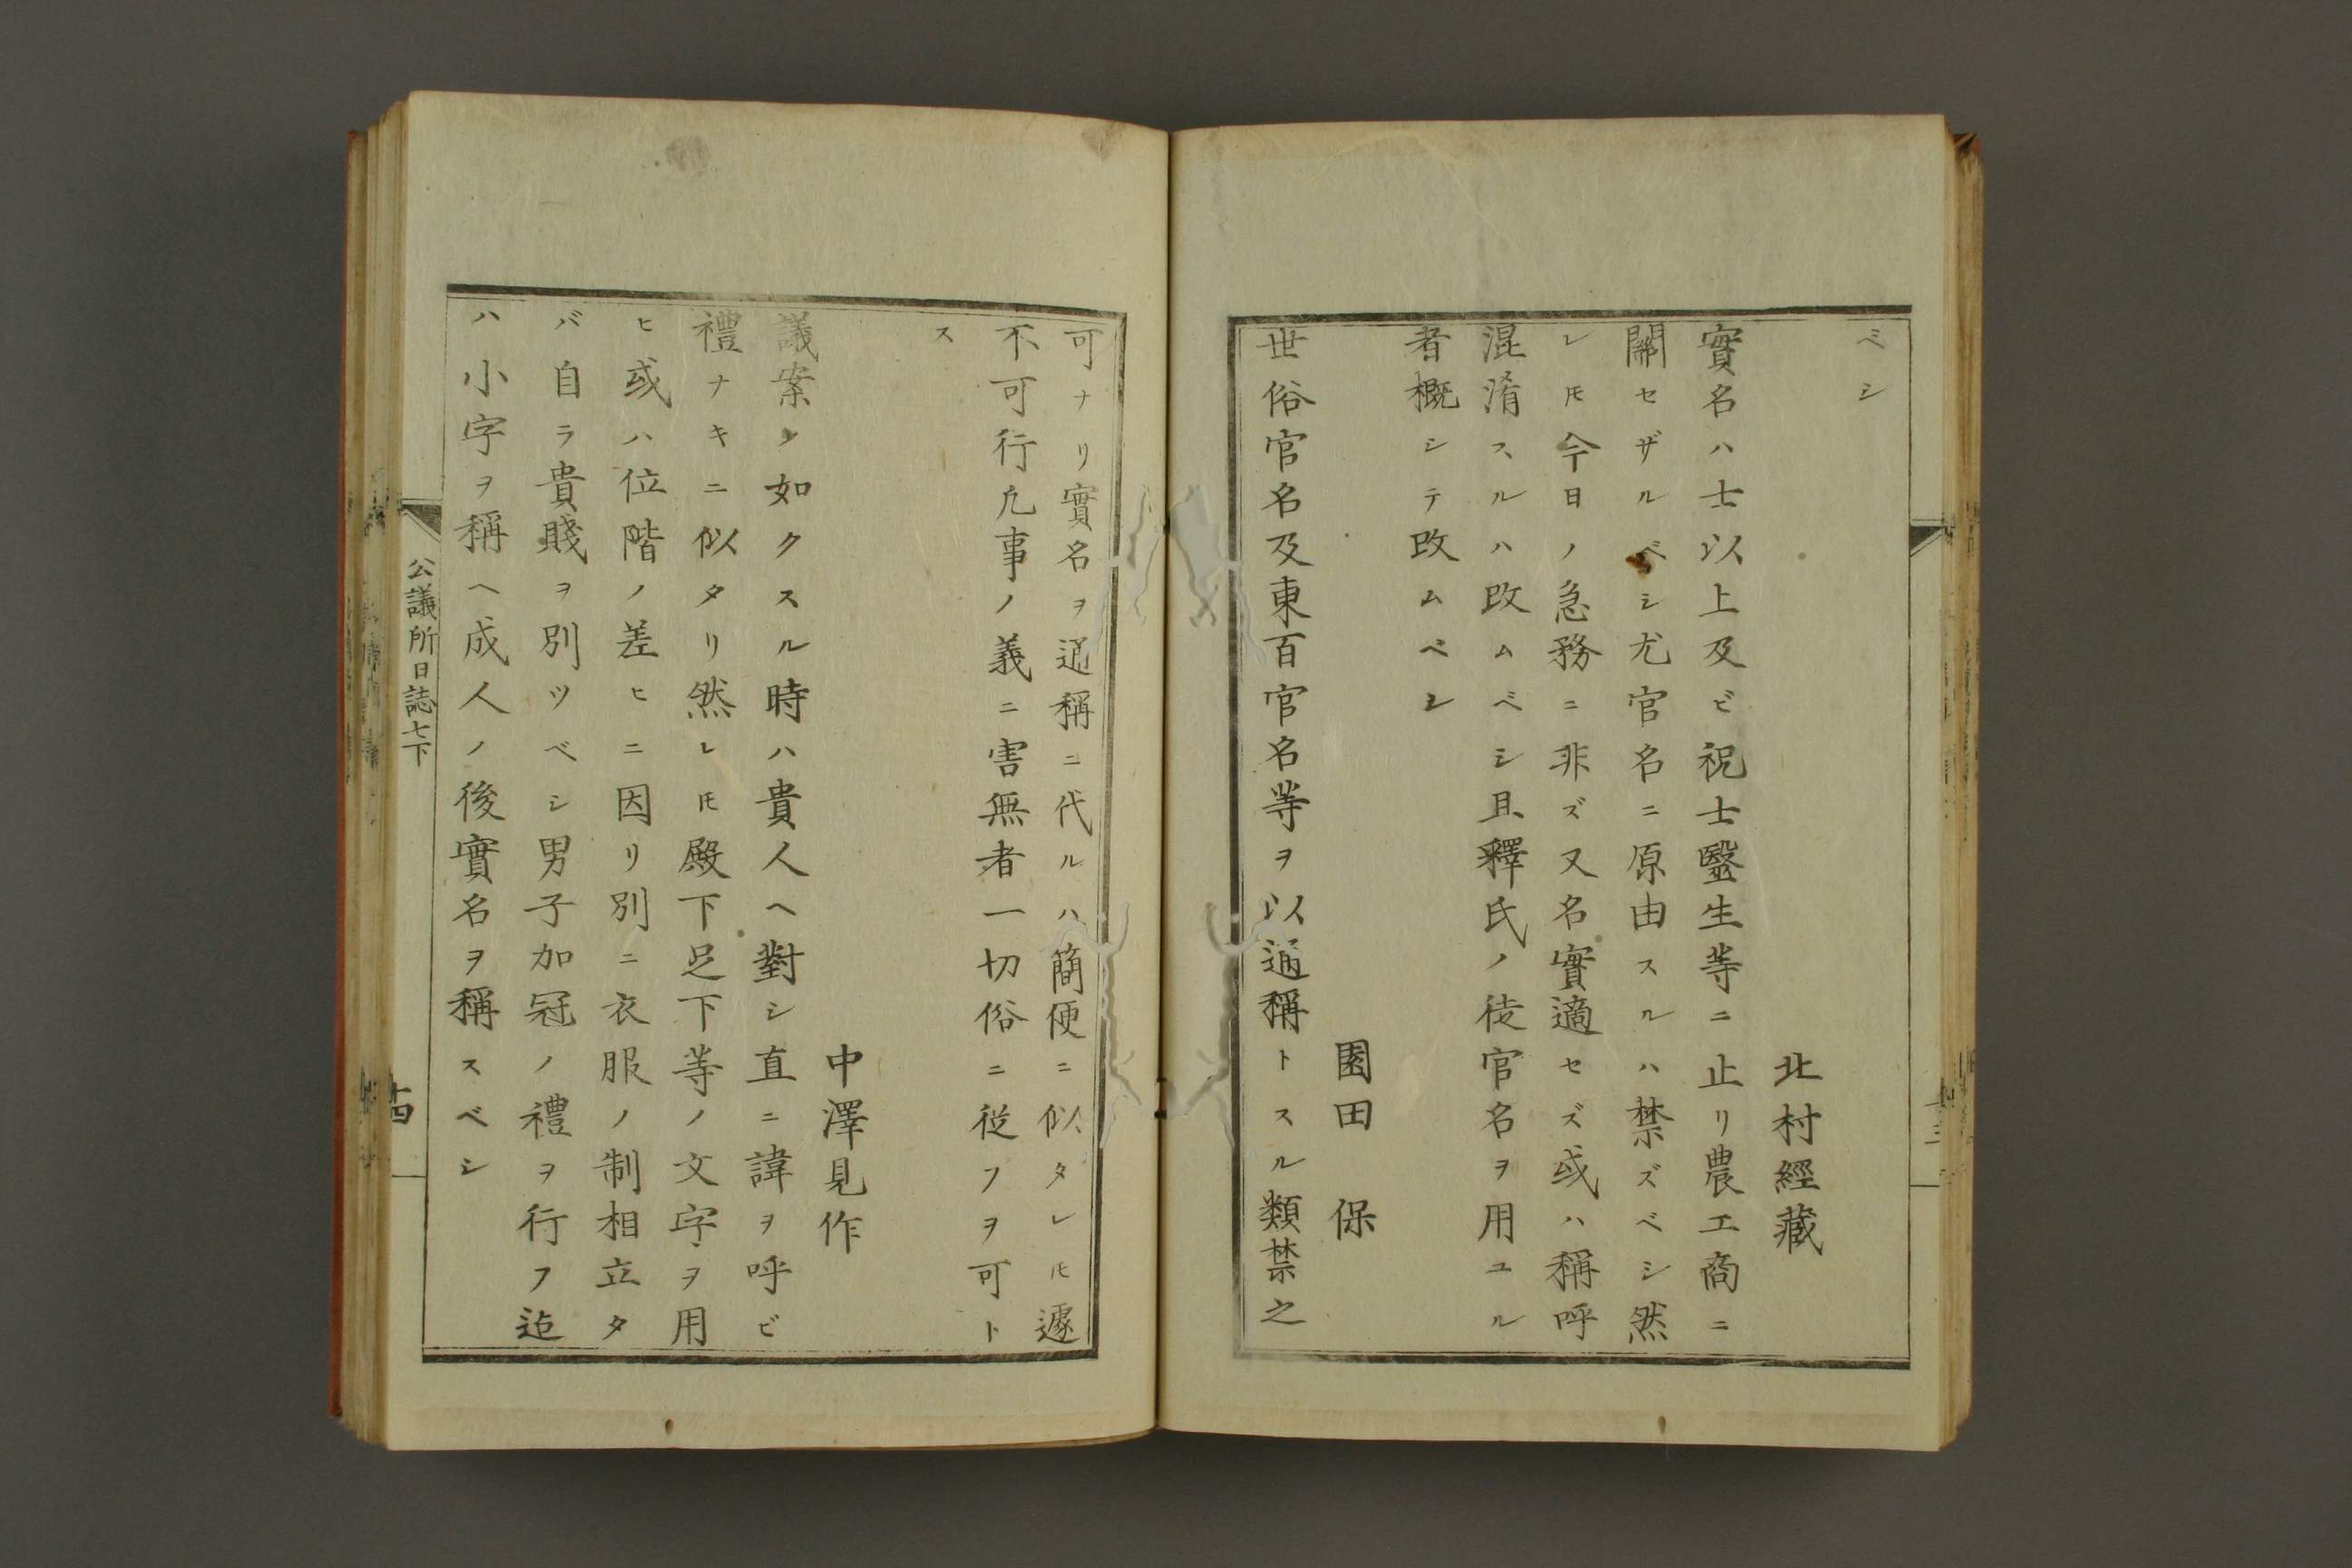 ベシ
北村經藏
實名ハ士以上及ビ祝士毉生等ニ止リ農工商ニ
關セザルベシ尤官名ニ原由スルハ禁ズベシ然
レ𪜈今日ノ急務ニ非ズ又名實適セズ或ハ稱呼
混淆スルハ改ムベシ且釋氏ノ徒官名ヲ用ユル
者概シテ改ムベシ
園田保
世俗官名及東百官名等ヲ以通稱トスル類禁之
可ナリ實名ヲ通稱ニ代ルハ簡便ニ似タレ𪜈遽
不可行凡事ノ義ニ害無者一切俗ニ従フヲ可ト
ス
中澤見作
議案ノ如クスル時ハ貴人ヘ對シ直ニ諱ヲ呼ビ
禮ナキニ似タリ然レ𪜈殿下足下等ノ文字ヲ用
ヒ或ハ位階ノ差ヒニ因リ別ニ衣服ノ制相立タ
バ自ラ貴賤ヲ別ツベシ男子加冠ノ禮ヲ行フ迄
ハ小字ヲ稱ヘ成人ノ後實名ヲ稱スベシ
公議所日誌七下
十四